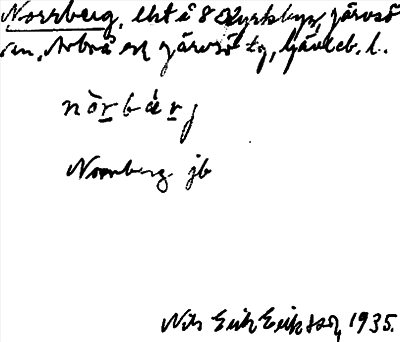 Norrberg, lht å 8 Kyrkbyn, Järvsö
sn, Arbrå och Järvsö tg, Gävleb. l.
nòrbárj
Norrberg jb
Nils Erik Eriksson, 1935.